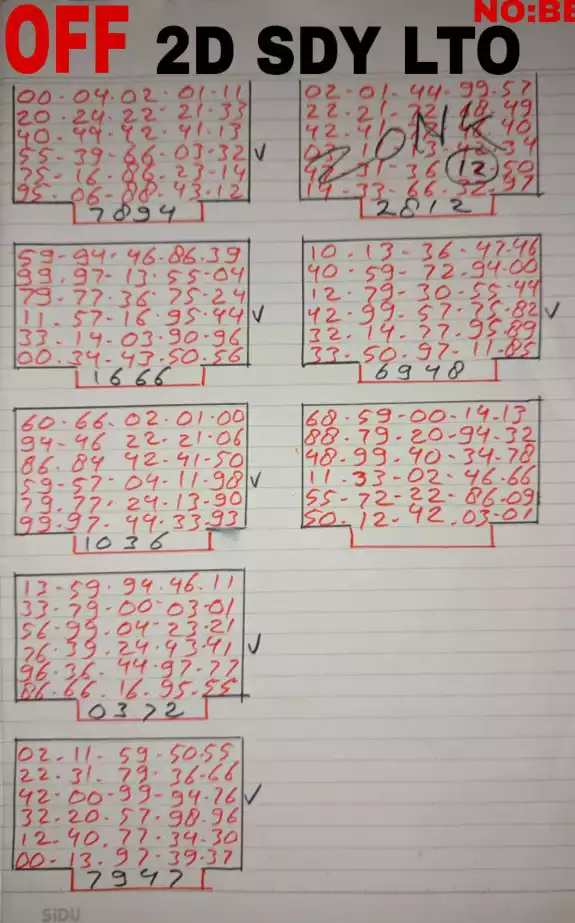 NO:BE
OFF 2D SDY LTO
00-04-02-01-11
20-24-22-21-33
40-44-42-41-13
55-39-66-03-32
75-16-86-23-14
95-06-88-43-12
7894
59-94-46-86-39
99-97-13-55-04
79-77-36-75-24
11-57-16-95-44
33-14-03-90-96
00-34-43-50-56
1666
60-66-02-01-00
94-46-22-21-06
86-84-42-41-50
59-57-04-11-98
79-77-24-13-90
99-97-44-33-93
1036
13-59-94-46-11
33-79-00-03-01
56-99-04-23-21
76-39-24-43-41
96-36-44-97-77
86-66-16-95-55
0372
02-11-59-50-55
22-31-79-36-66
42-00-99-94-76
32-20-57-98-96
12-40-77-34-30
00-13-97-39-37
7947
02-01-44-99-57
22-21-72-48-49
ZONK
2812
10-13-36-47-46
40-59-72-94-00
12-79-30-55-44
42-99-57-75-82
32-14-77-95-89
33-50-97-11-85
6948
68-59-00-14-13
88-79-20-94-32
48-99-40-34-78
11-33-02-46-66
55-72-22-86-09
50-12-42-03-01
SiDU